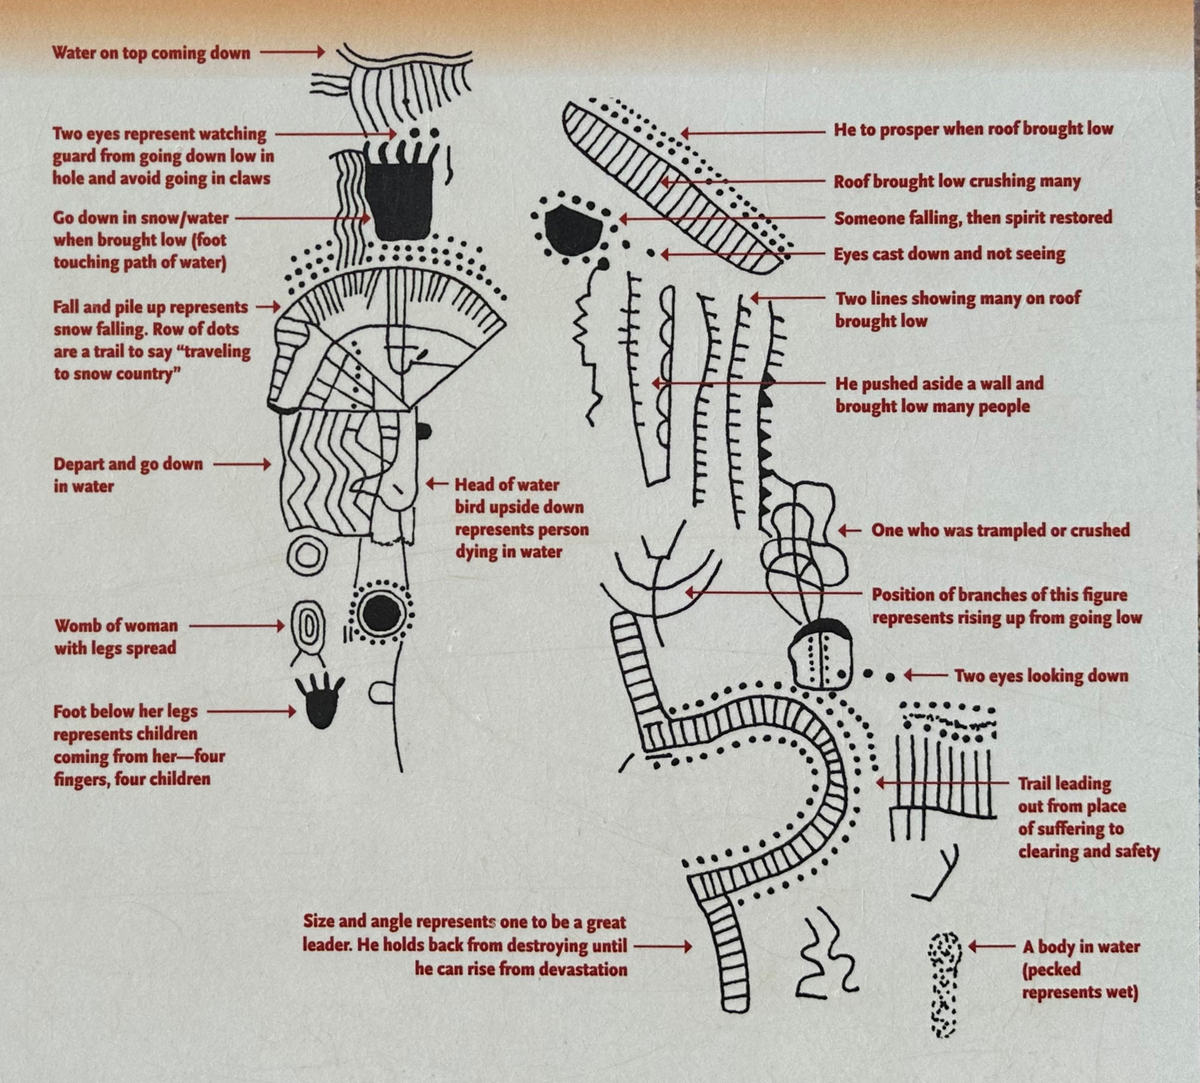 Water on top coming down
Two eyes represent watching
guard from going down low in
hole and avoid going in claws
Go down in snow/water
when brought low (foot
touching path of water)
Fall and pile up represents
snow falling. Row of dots
are a trail to say “traveling
to snow country”
Depart and go down
in water
Head of water
bird upside down
represents person
dying in water
Womb of woman
with legs spread
Foot below her legs
represents children
coming from her—four
fingers, four children
He to prosper when roof brought low
Roof brought low crushing many
Someone falling, then spirit restored
Eyes cast down and not seeing
Two lines showing many on roof
brought low
He pushed aside a wall and
brought low many people
One who was trampled or crushed
Position of branches of this figure
represents rising up from going low
Two eyes looking down
Trail leading
out from place
of suffering to
clearing and safety
Size and angle represents one to be a great
leader. He holds back from destroying until
he can rise from devastation
A body in water
(pecked
represents wet)